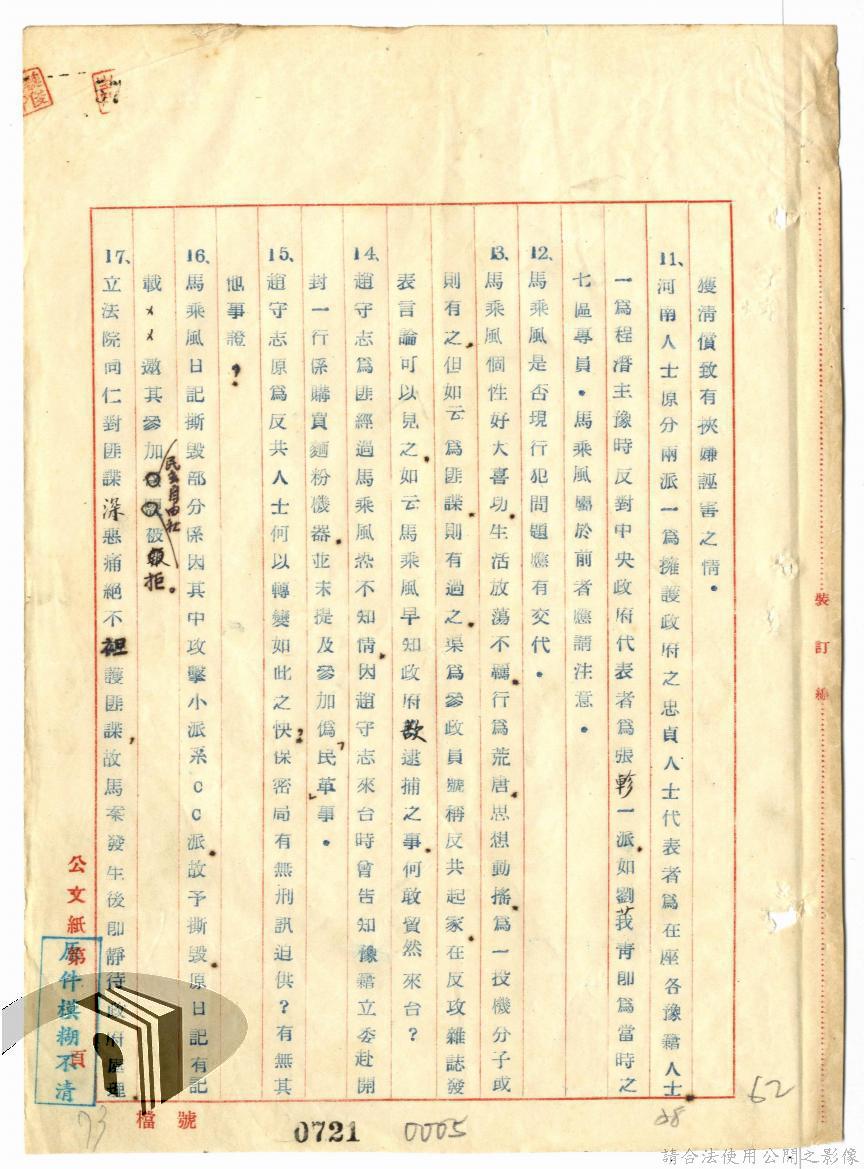 獲清償致有挾嫌誣害之情。
11、河南人士原分兩派一為擁護政府之忠貞人士代表者為在座各豫籍人士
一為程潛主豫時反對中央政府代表者為張軫一派如劉莪青即為當時之
七區專員。馬乘風屬於前者應請注意。
12、馬乘風是否現行犯問題應有交代。
13、馬乘風個性好大喜功生活放蕩不羈行為荒唐思想動搖為一投機分子或
則有之但如云為匪諜則有過之渠為參政員號稱反共起家在反攻雜誌發
表言論可以見之如云馬乘風早知政府欲逮捕之事何敢貿然來台？
14、趙守志為匪經過馬乘風恐不知情因趙守志來台時曾告知豫籍立委赴開
封一行係購買麵粉機器並未提及參加偽「民革」事。
15、趙守志原為反共人士何以轉變如此之快？保密局有無刑訊迫供？有無其
他事證？
16、馬乘風日記撕毀部分係因其中攻擊小派系CC派故予撕毀原日記有記
載××邀其參加民主自由社被拒。
17、立法院同仁對匪諜深惡痛絕不袒護匪諜，故馬案發生後即靜待政府處理
裝訂線
公文紙第 頁
原件模糊不清
檔號
0721
0005
73
28
62
請合法使用公開之影像